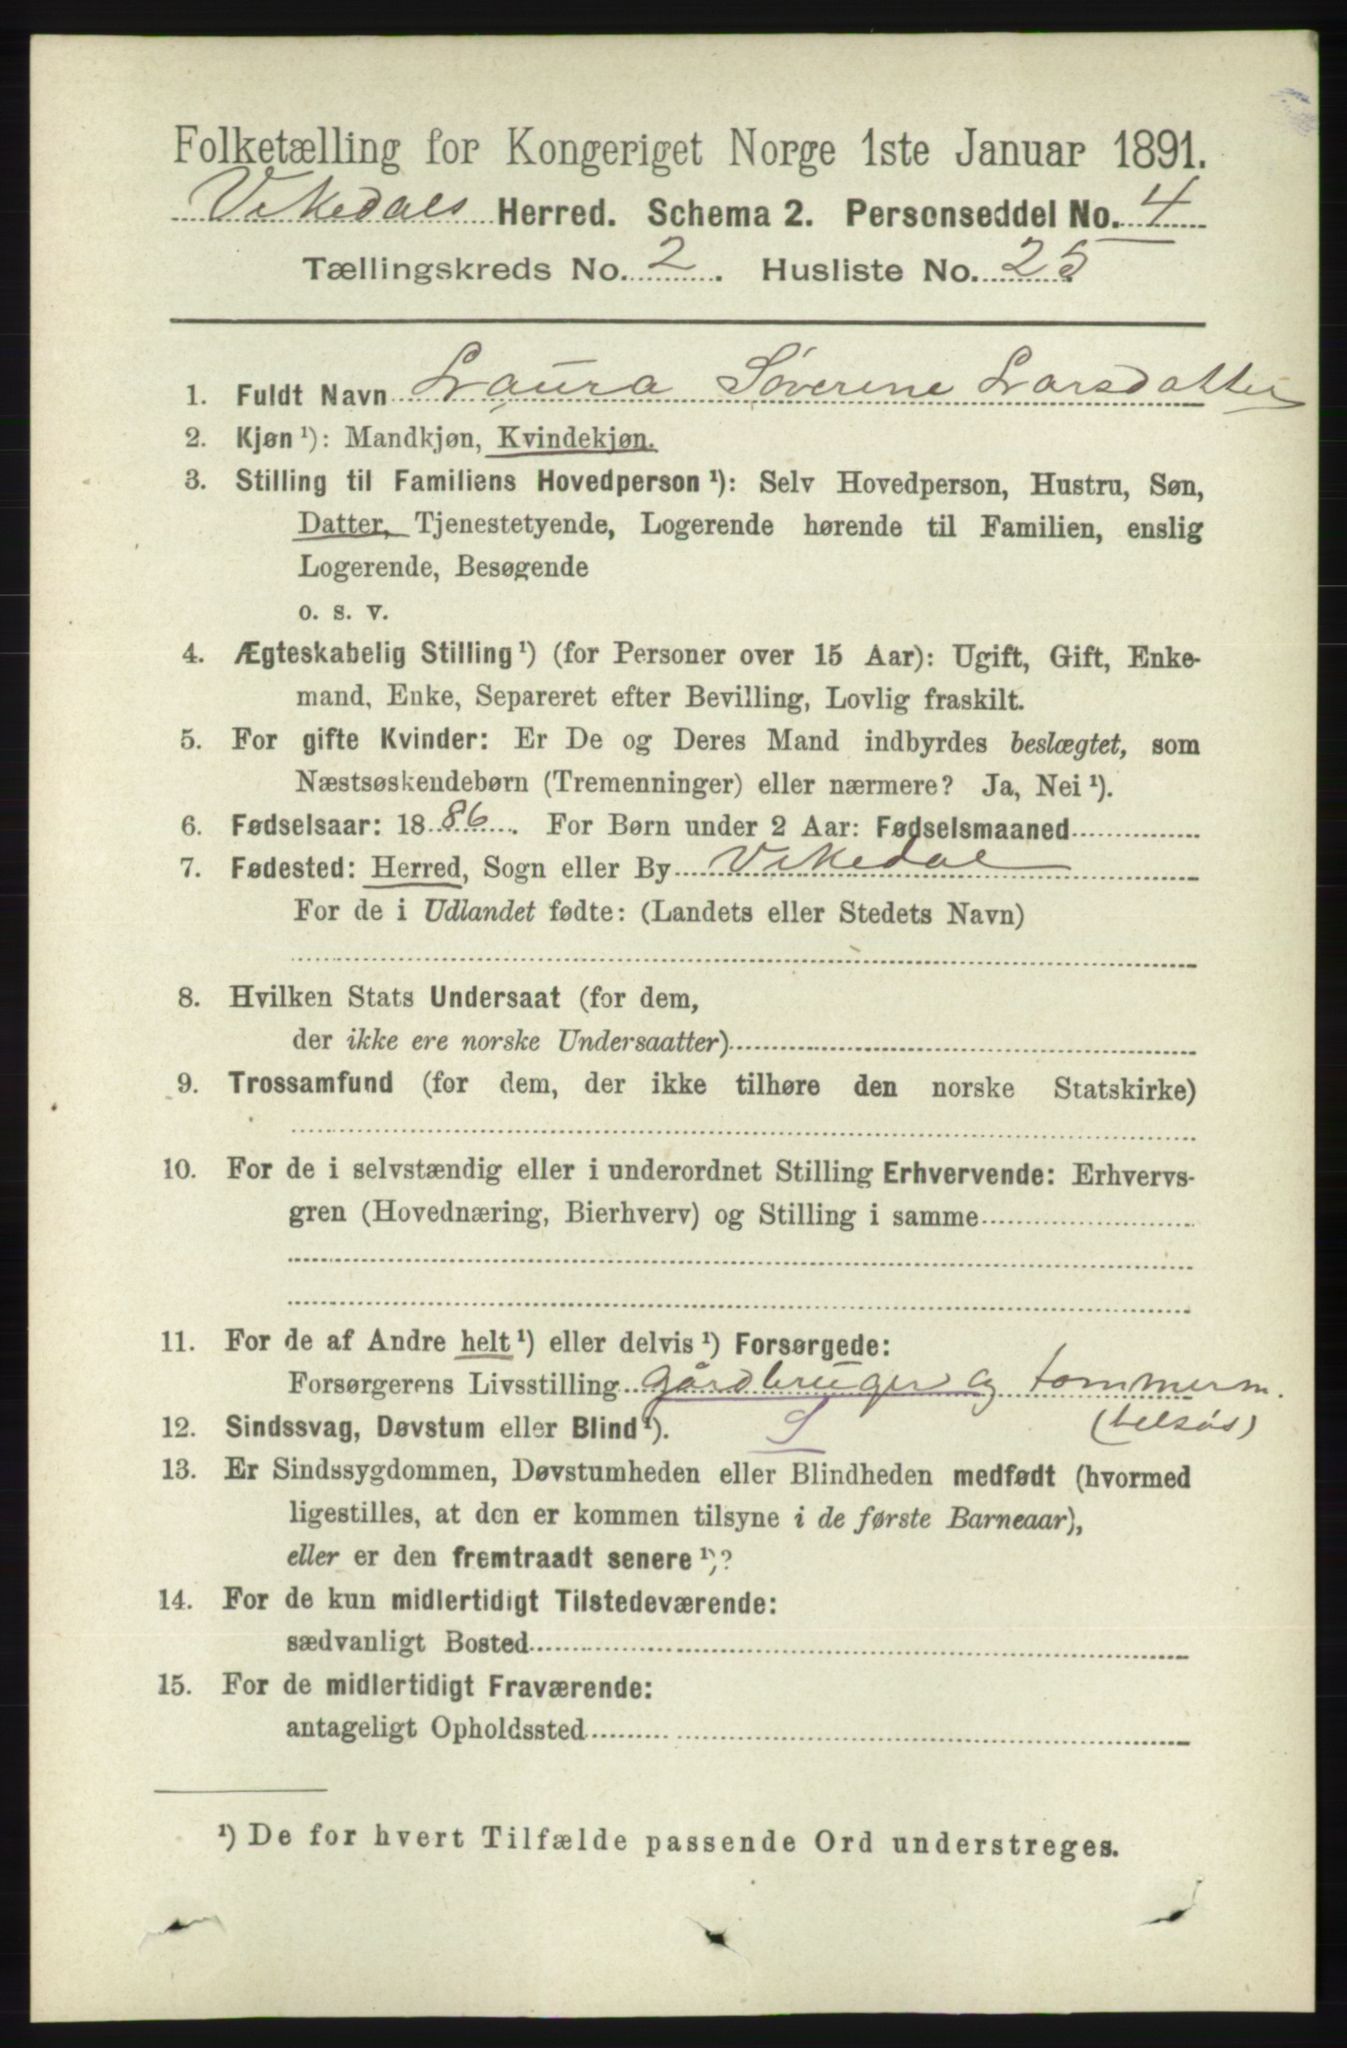 Folketælling for Kongeriget Norge 1ste Januar 1891.
Vikedals Herred. Schema 2. Personseddel No. 4
Tællingskreds No. 2. Husliste No. 25
1. Fuldt Navn Laura Søverine Larsdatter
2. Kjøn ¹): Mandkjøn, Kvindekjøn.
3. Stilling til Familiens Hovedperson ¹): Selv Hovedperson, Hustru, Søn,
Datter, Tjenestetyende, Logerende hørende til Familien, enslig
Logerende, Besøgende
o. s. v.
4. Ægteskabelig Stilling ¹) (for Personer over 15 Aar): Ugift, Gift, Enke-
mand, Enke, Separeret efter Bevilling, Lovlig fraskilt.
5. For gifte Kvinder: Er De og Deres Mand indbyrdes beslægtet, som
Næstsøskendebørn (Tremenninger) eller nærmere? Ja, Nei ¹).
6. Fødselsaar: 1886. For Børn under 2 Aar: Fødselsmaaned
7. Fødested: Herred, Sogn eller By Vikedal
For de i Udlandet fødte: (Landets eller Stedets Navn)
8. Hvilken Stats Undersaat (for dem,
der ikke ere norske Undersaatter)
9. Trossamfund (for dem, der ikke tilhøre den norske Statskirke)
10. For de i selvstændig eller i underordnet Stilling Erhvervende: Erhvervs-
gren (Hovednæring, Bierhverv) og Stilling i samme
11. For de af Andre helt ¹) eller delvis ¹) Forsørgede:
Forsørgerens Livsstilling gårdbruger og tommerm.
(selsøs)
12. Sindssvag, Døvstum eller Blind ¹). S
13. Er Sindssygdommen, Døvstumheden eller Blindheden medfødt (hvormed
ligestilles, at den er kommen tilsyne i de første Barneaar),
eller er den fremtraadt senere ¹)?
14. For de kun midlertidigt Tilstedeværende:
sædvanligt Bosted
15. For de midlertidigt Fraværende:
antageligt Opholdssted
¹) De for hvert Tilfælde passende Ord understreges.